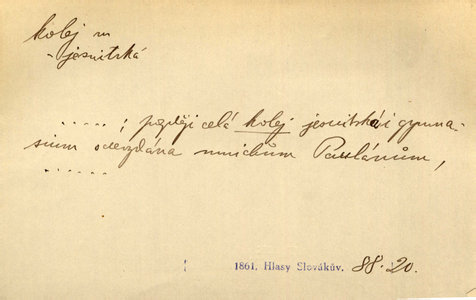 kolej m
- jesuitská
. . . . . ; později celá kolej jesuitská i gymna-
sium odevzdána mnichům Paulánům,
. . . . . .
1861, Hlasy Slovákův. 88.20.